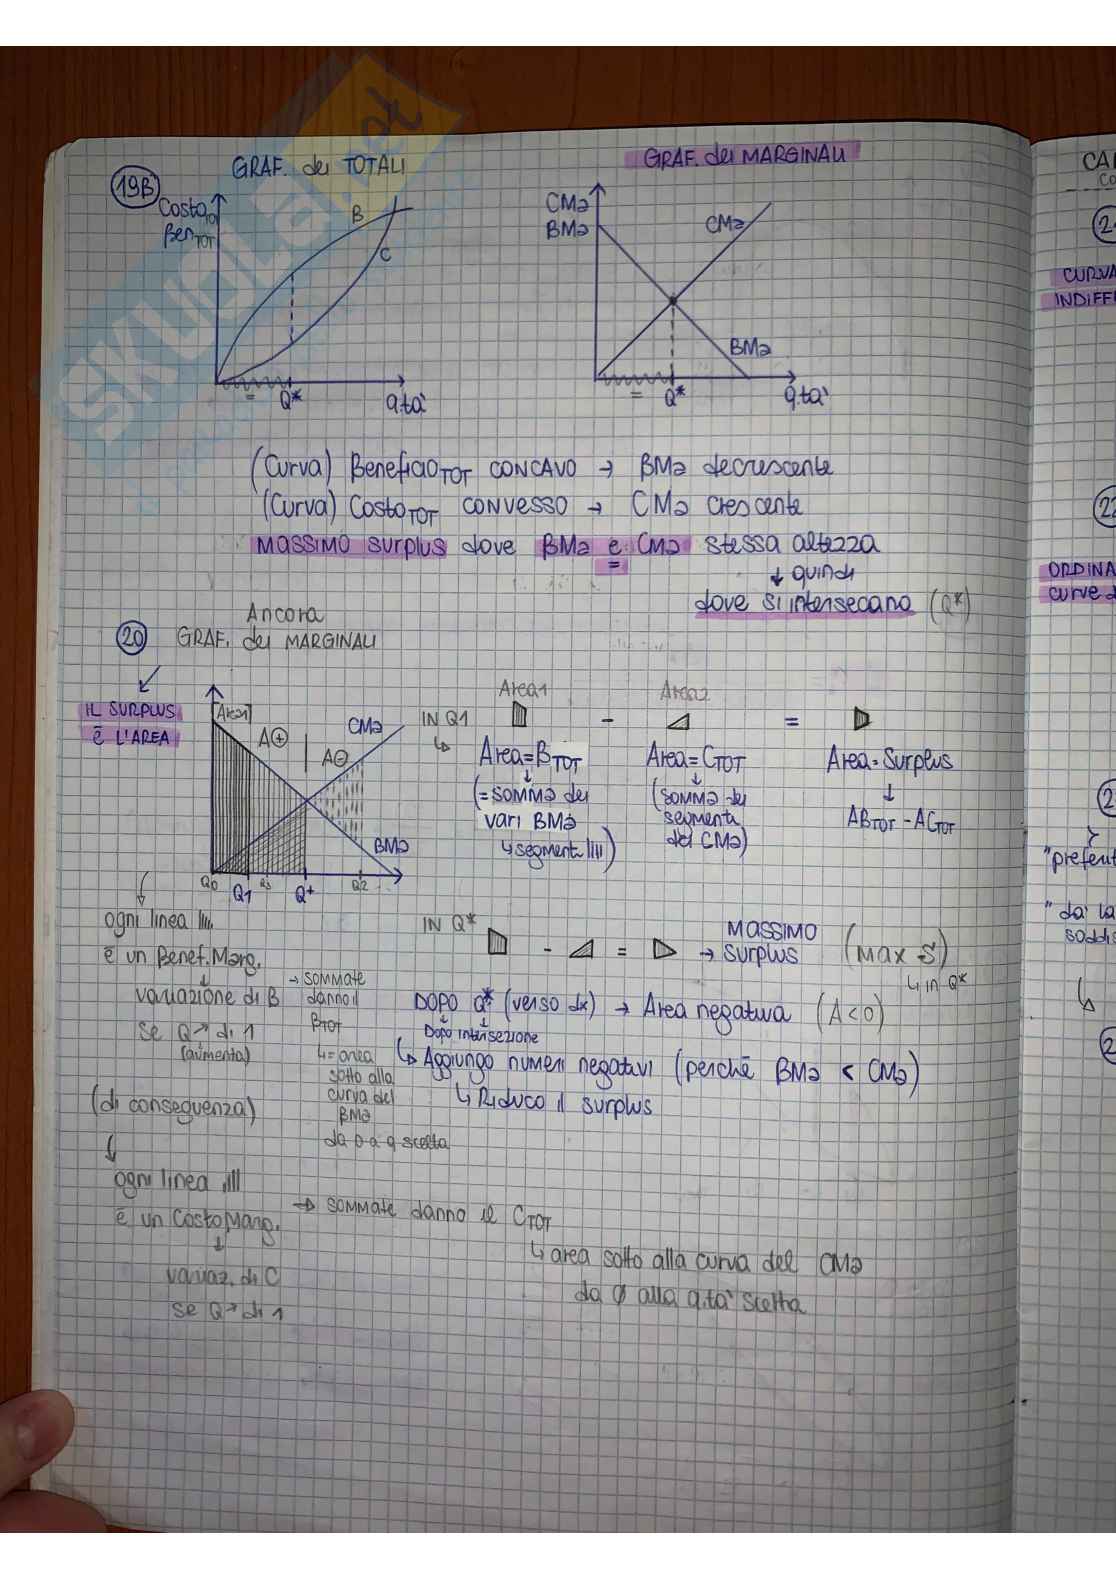 SKUOLA.net
19B
GRAF. dei TOTALI
Costo TOT
Ben TOT
B
C
=
Q*
q.tà
GRAF. dei MARGINALI
CMa
BMa
CMa
BMa
=
Q*
q.tà
(Curva) Beneficio TOT CONCAVO → BMa decrescente
(Curva) Costo TOT CONVESSO → CMa crescente
MASSIMO SURPLUS dove BMa e CMa stessa altezza
=
↓ quindi
dove si intersecano (Q*)
Ancora
20 GRAF. dei MARGINALI
IL SURPLUS
È L'AREA
Area1
A⊕
A⊖
CMa
BMa
Q0 Q1 Q* Q2
IN Q1
Area1 - Area2 =
Area=BTOT
(=somma dei
vari BMa
↳segmenti ||||)
Area=CTOT
(somma dei
segmenti
del CMa)
Area=Surplus
↓
ABTOT - ACTOT
ogni linea ||||
è un Benef.Marg.
↓
variazione di B
se Q↗ di 1
(aumenta)
→ SOMMATE
danno il
BTOT
↳=area
sotto alla
curva del
BMa
da 0 a q scelta
IN Q*
- = → MASSIMO
SURPLUS (max S)
↳ in Q*
DOPO Q* (verso dx) → Area negativa (A<0)
Dopo intersezione
↳ Aggiungo numeri negativi (perché BMa < CMa)
↳ Riduco il surplus
(di conseguenza)
↓
ogni linea ||||
è un Costo Marg.
↓
variaz. di C
se Q↗ di 1
→ SOMMATE danno il CTOT
↳ area sotto alla curva del CMa
da 0 alla q.tà scelta
CURVA
INDIFFE
ORDINA
curve d
"prefer
"dà la
soddis